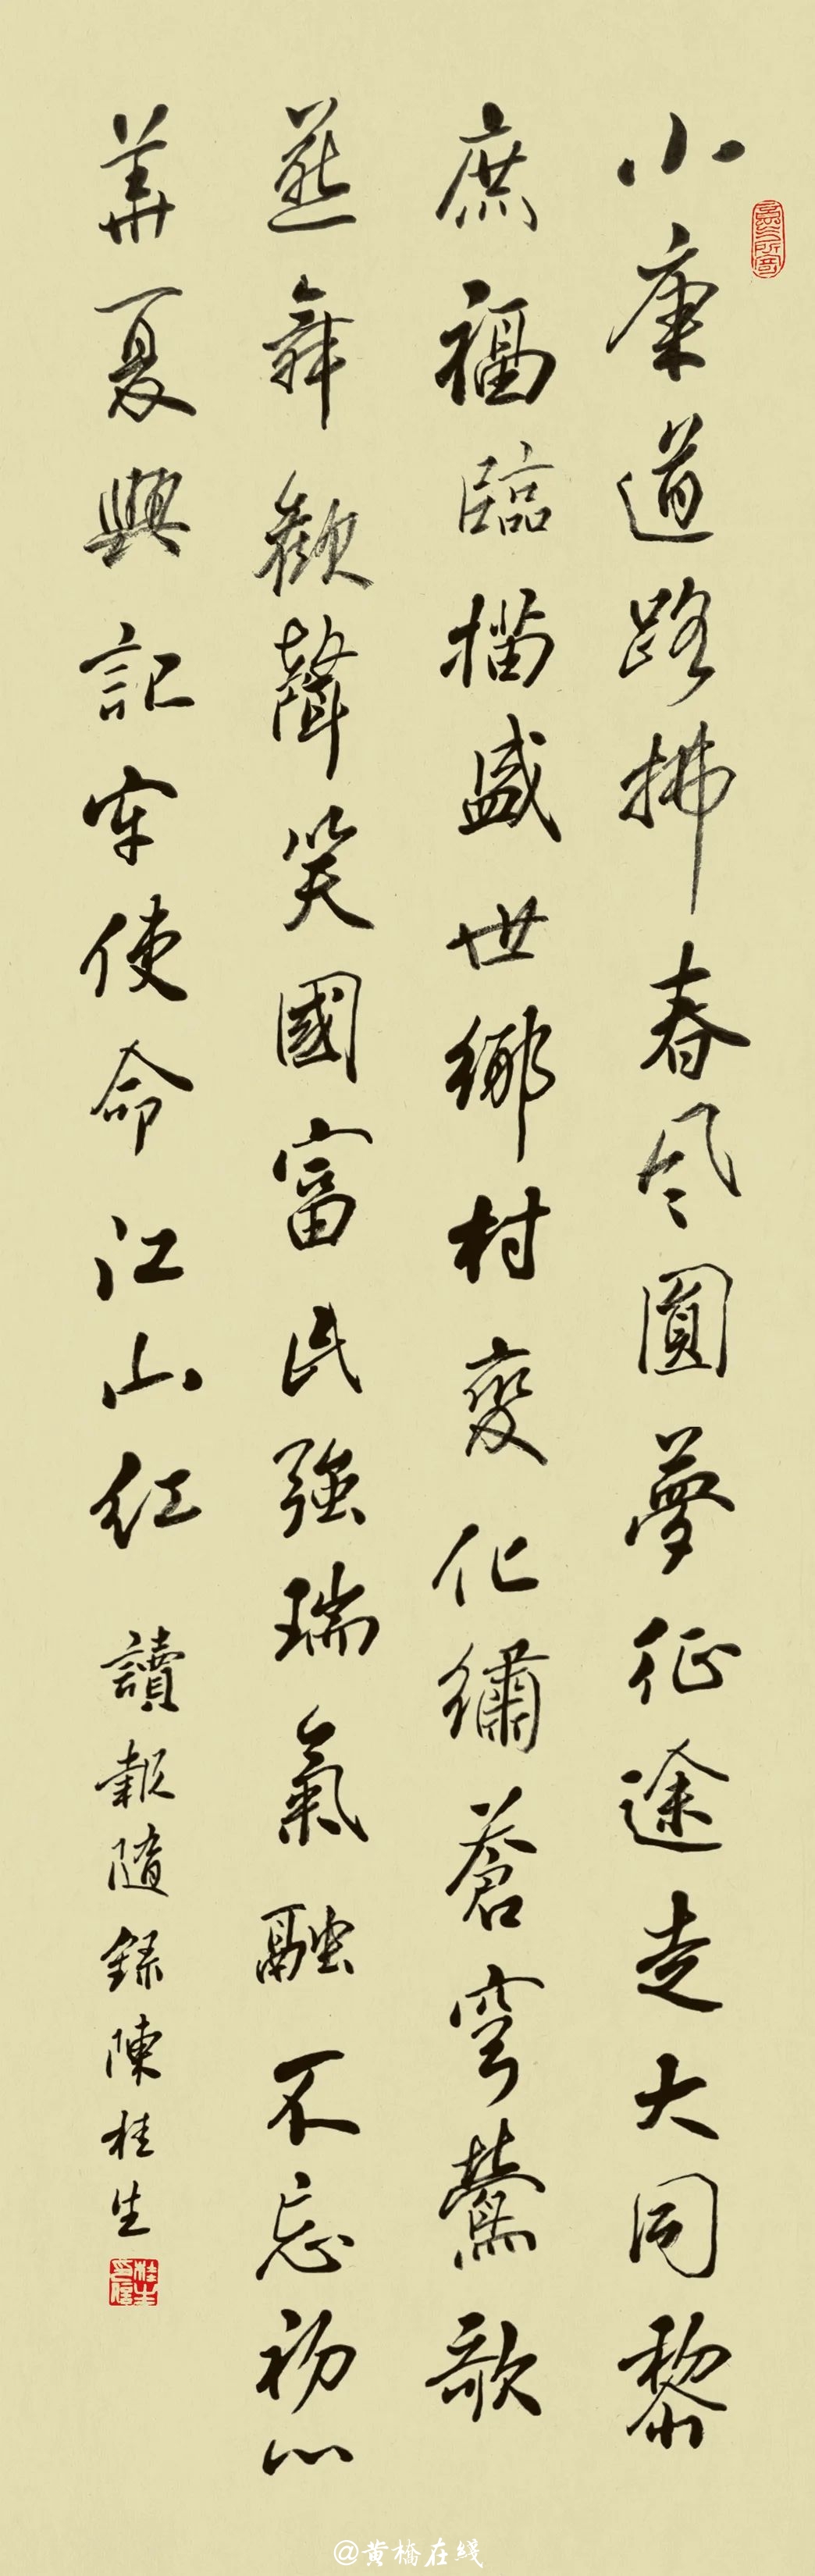 小康道路拂春风圓夢征途走大同黎
庶福臨描盛世鄉村变化繡蒼穹鶯歌
燕舞歡聲笑國富民強瑞氣融不忘初心
華夏興記牢使命江山红
讀報隨録陳桂生
@黄橋在綫